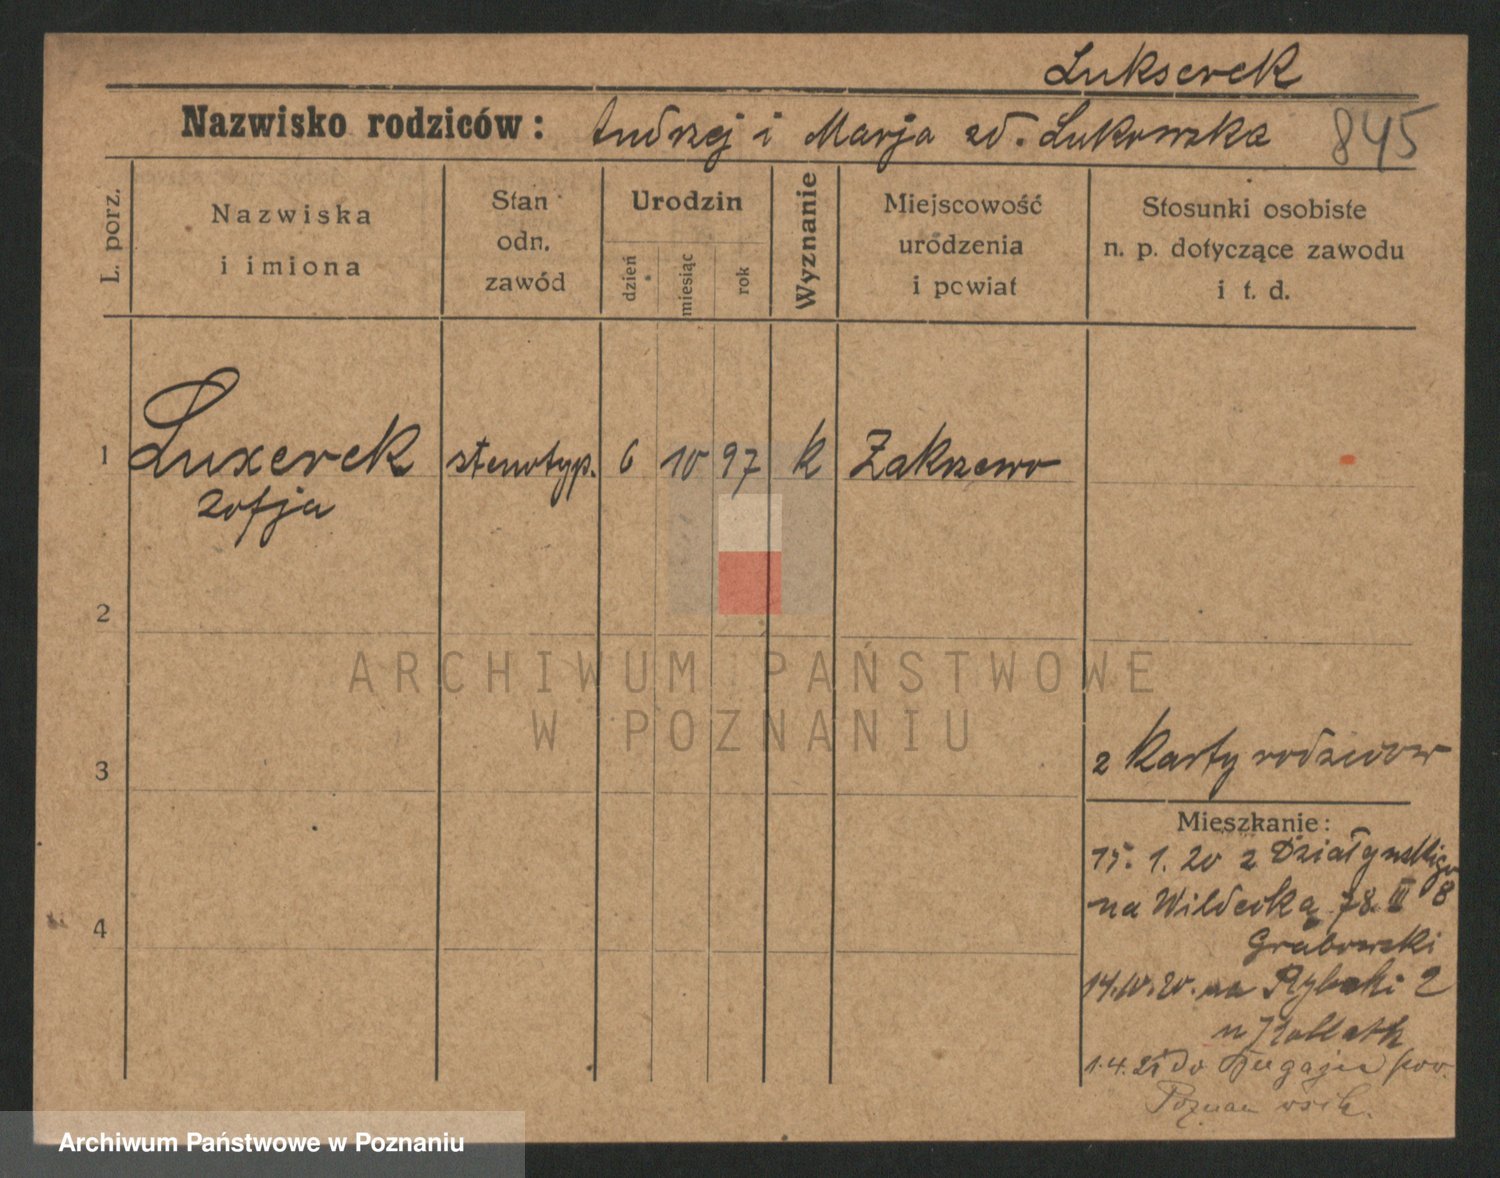 Lukserek
Nazwisko rodziców: Andrzej i Marja zd. Lukowska
845
L. porz.
Nazwiska
i imiona
Stan
odn.
zawód
Urodzin
dzień
miesiąc
rok
Wyznanie
Miejscowość
urodzenia
i powiat
Stosunki osobiste
n. p. dotyczące zawodu
i t. d.
1 Luxerek stenotyp. 6 10 97 k Zakrzewo
Zofja
2
ARCHIWUM PAŃSTWOWE
W POZNANIU
3
z karty rodziców
Mieszkanie:
15. 1. 20 z Działyńskiego
8
na Wildecką 78 III
4
Grabowski
14.10.20. na Rybaki 2
1.4.21 do pow.
Poznań
Archiwum Państwowe w Poznaniu